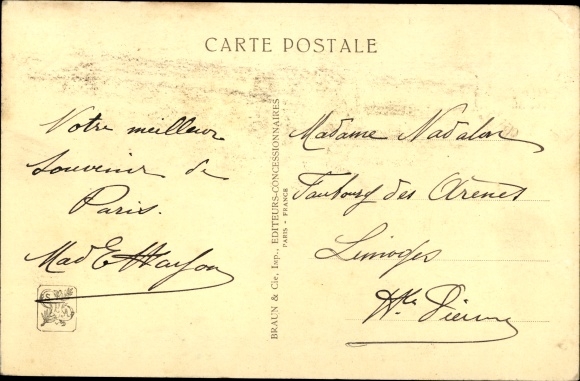 CARTE POSTALE
Votre meilleur
souvenir de
Paris.
Mad E
BRAUN & Cie, Imp., EDITEURS-CONCESSIONNAIRES
PARIS - FRANCE
Madame Nadalon
Faubourg des Arènes
Limoges
Hte Vienne